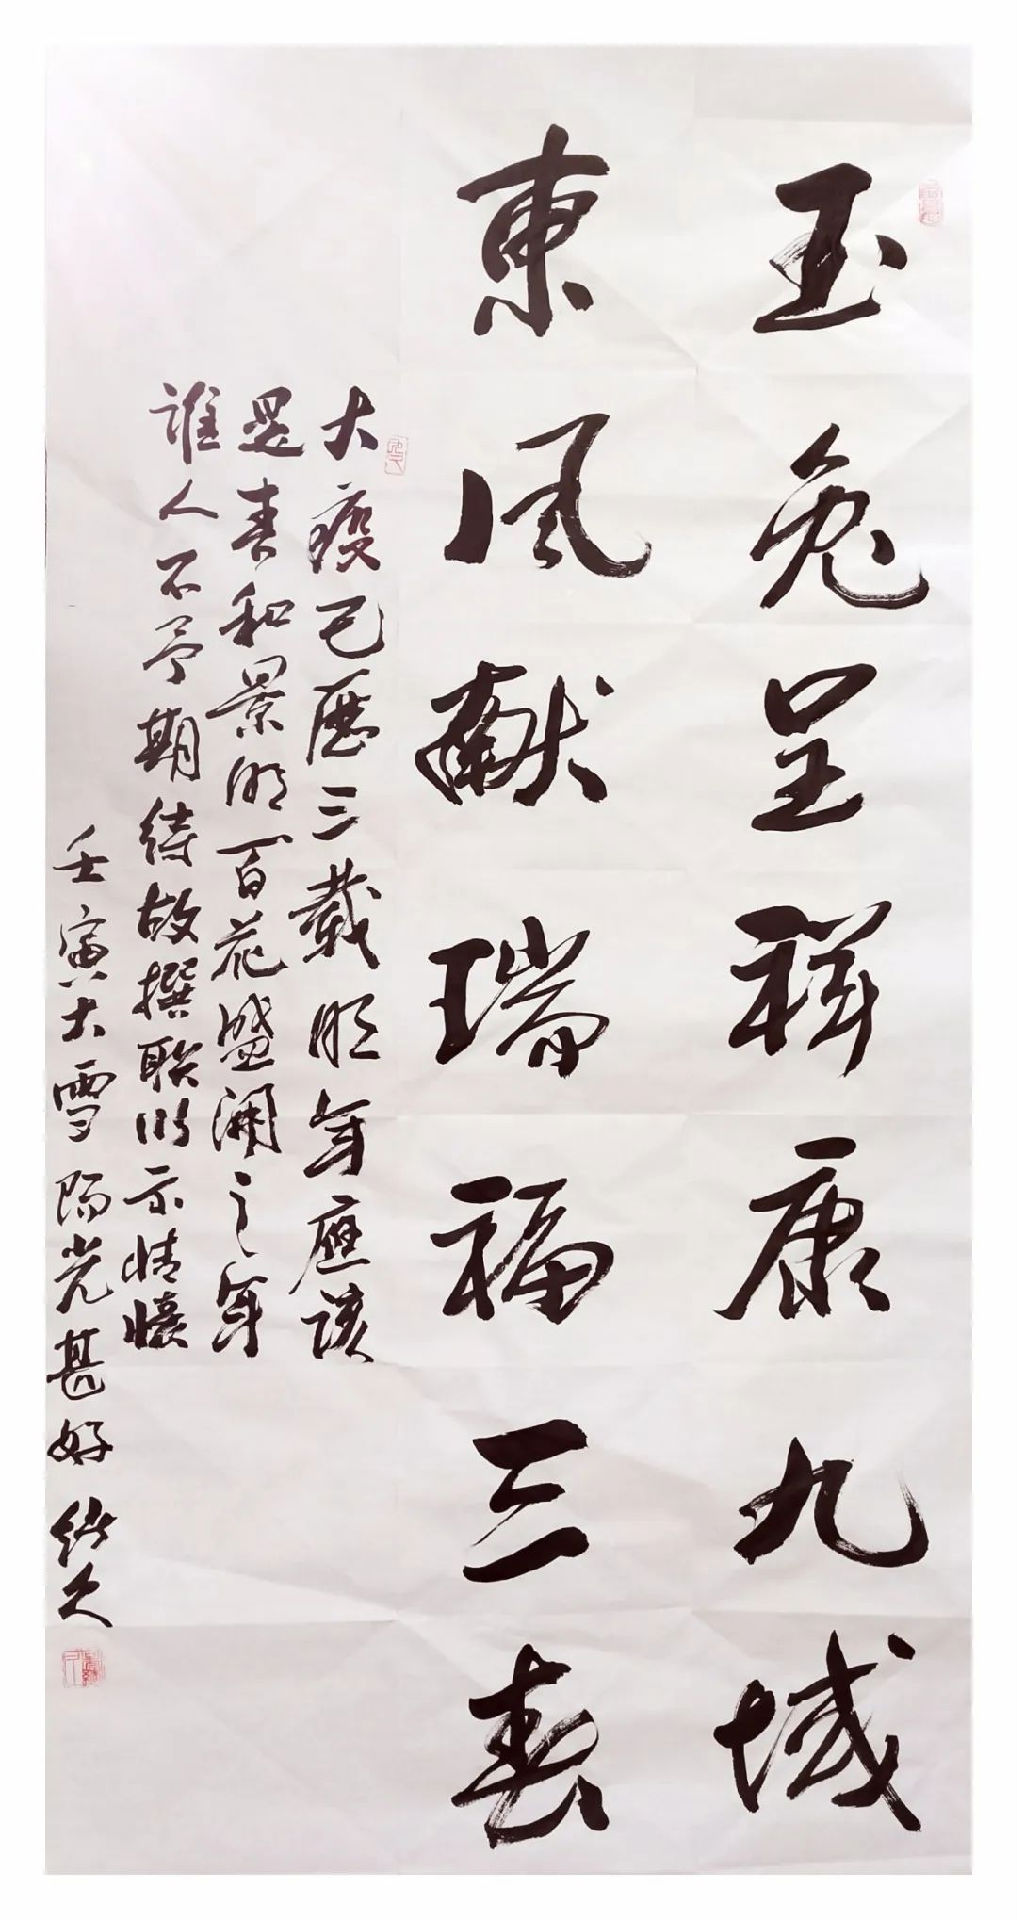 玉兔呈祥康九域
東风献瑞福三春
大疫已歷三载明年應该
是春和景明百花盛開之年
誰人不予期待故撰联以示情懷
壬寅大雪阳光甚好 绍久